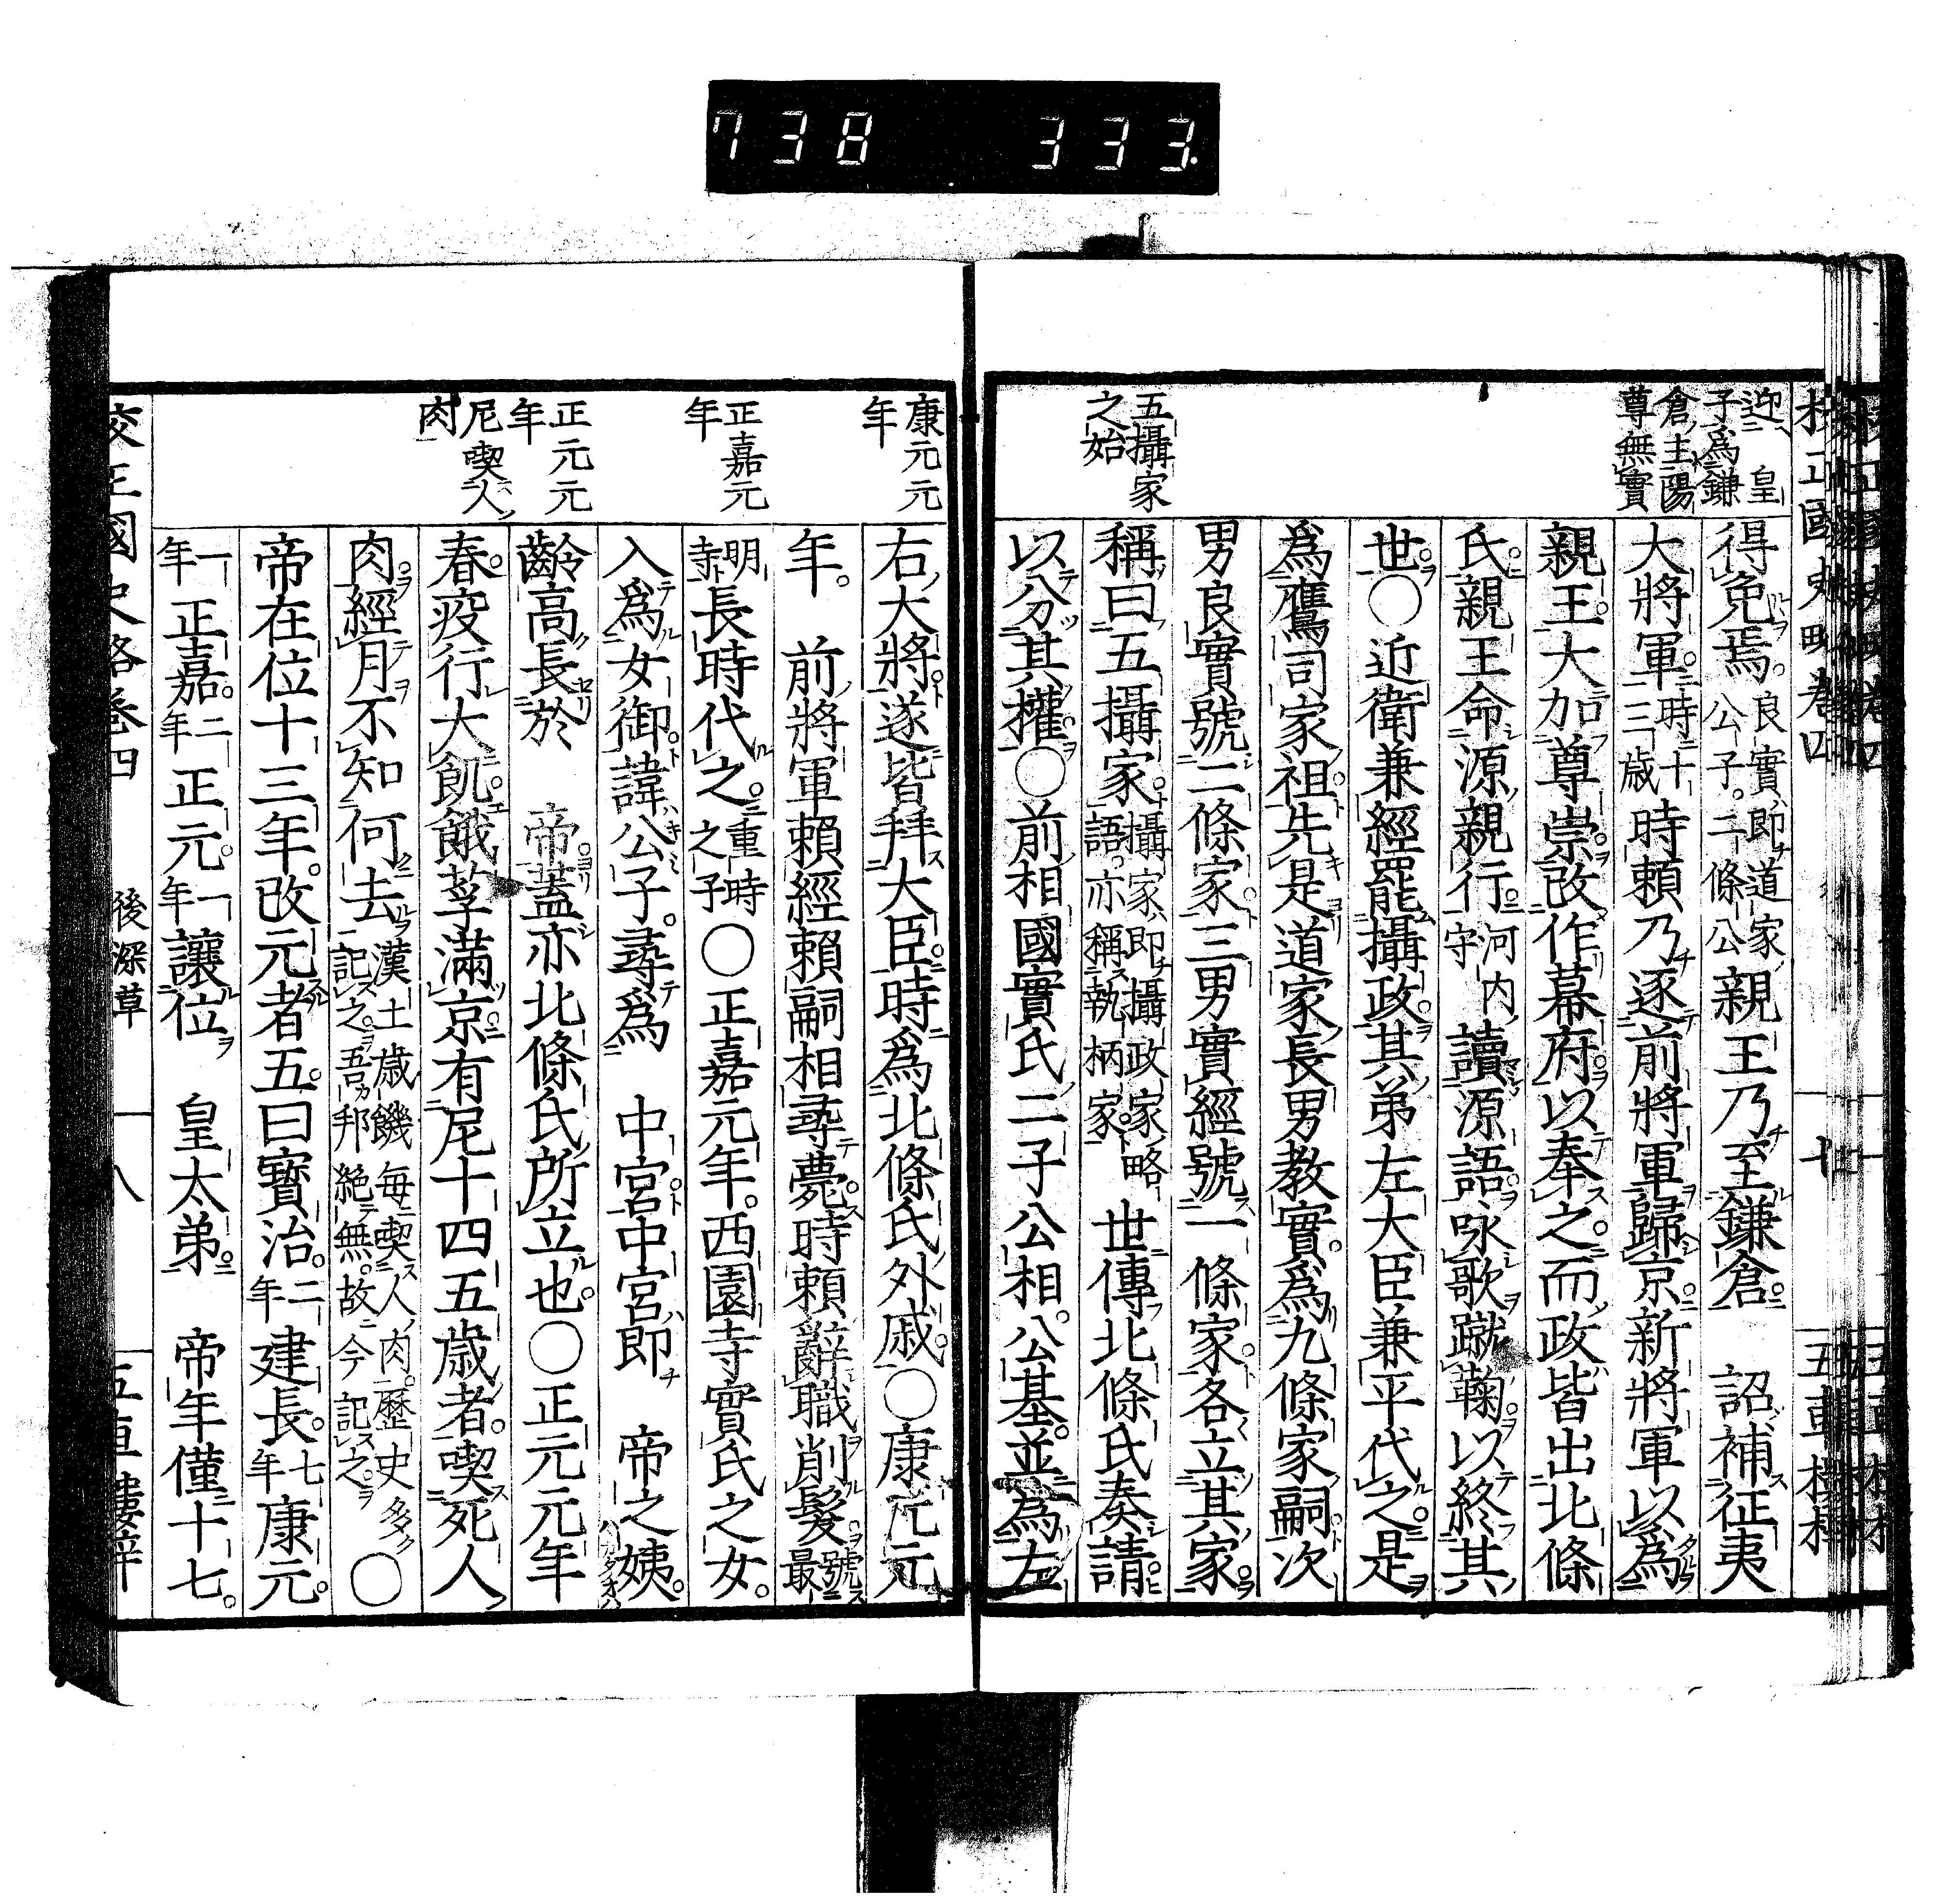 738 333.
迎 皇
子爲鎌
倉主陽
尊無實
五攝家
之始
得免焉。良實即道家公子。二條公親王乃至鎌倉 詔補征夷
大將軍時十三歲時賴乃逐前將軍歸京新將軍以爲
親王大加尊崇改作幕府以奉之而政皆出北條
氏親王命源親行河内守讀源語咏歌蹴鞠以終其
世〇近衛兼經罷攝政其弟左大臣兼平代之是
爲鷹司家祖先是道家長男教實爲九條家嗣次
男良實號二條家三男實經號一條家各立其家
稱曰五攝家攝家即攝政家略語亦稱執柄家世傳北條氏奏請
以分其權〇前相國實氏二子公相公基並爲左
康元元
年
正嘉元
年
正元元
年
尼喫人
肉
右大將遂皆拜大臣時爲北條氏外戚〇康元元
年。 前將軍賴經賴嗣相尋薨時賴辭職削髮號最
明寺長時代之重時之子〇正嘉元年。西園寺實氏之女。
入爲女御諱公子。尋爲 中宮中宮即 帝之姨。
齡高長於 帝蓋亦北條氏所立也。〇正元元年
春。疫行大飢餓莩滿京有尼十四五歲者。喫死人
肉。經月不知何去漢土歲饑每喫人肉。歷史多記之。吾邦絶無。故今記之〇
帝在位十三年。改元者五。曰寶治。二年建長。七年康元。
一年正嘉。二年正元。一年讓位 皇太弟 帝年僅十七。
校正國史略卷四
後深草
八